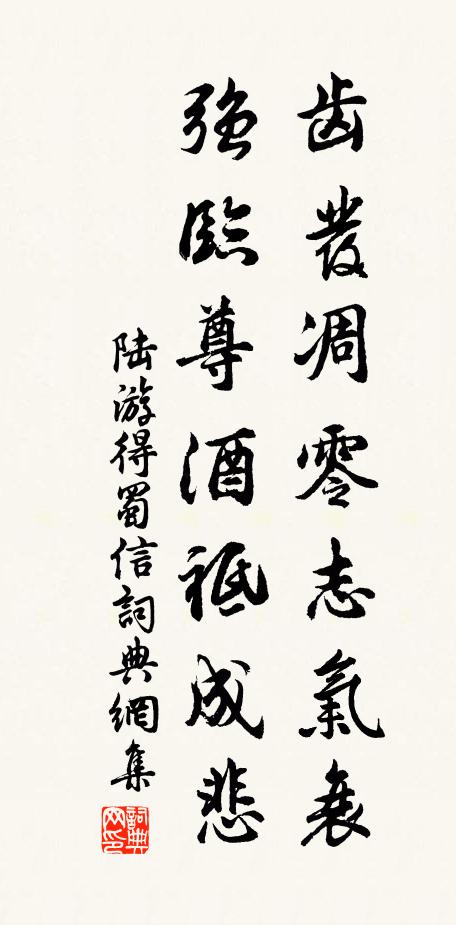 齒發凋零志氣衰
強臨尊酒祗成悲
陸游得蜀信詞典網集
詞典网印